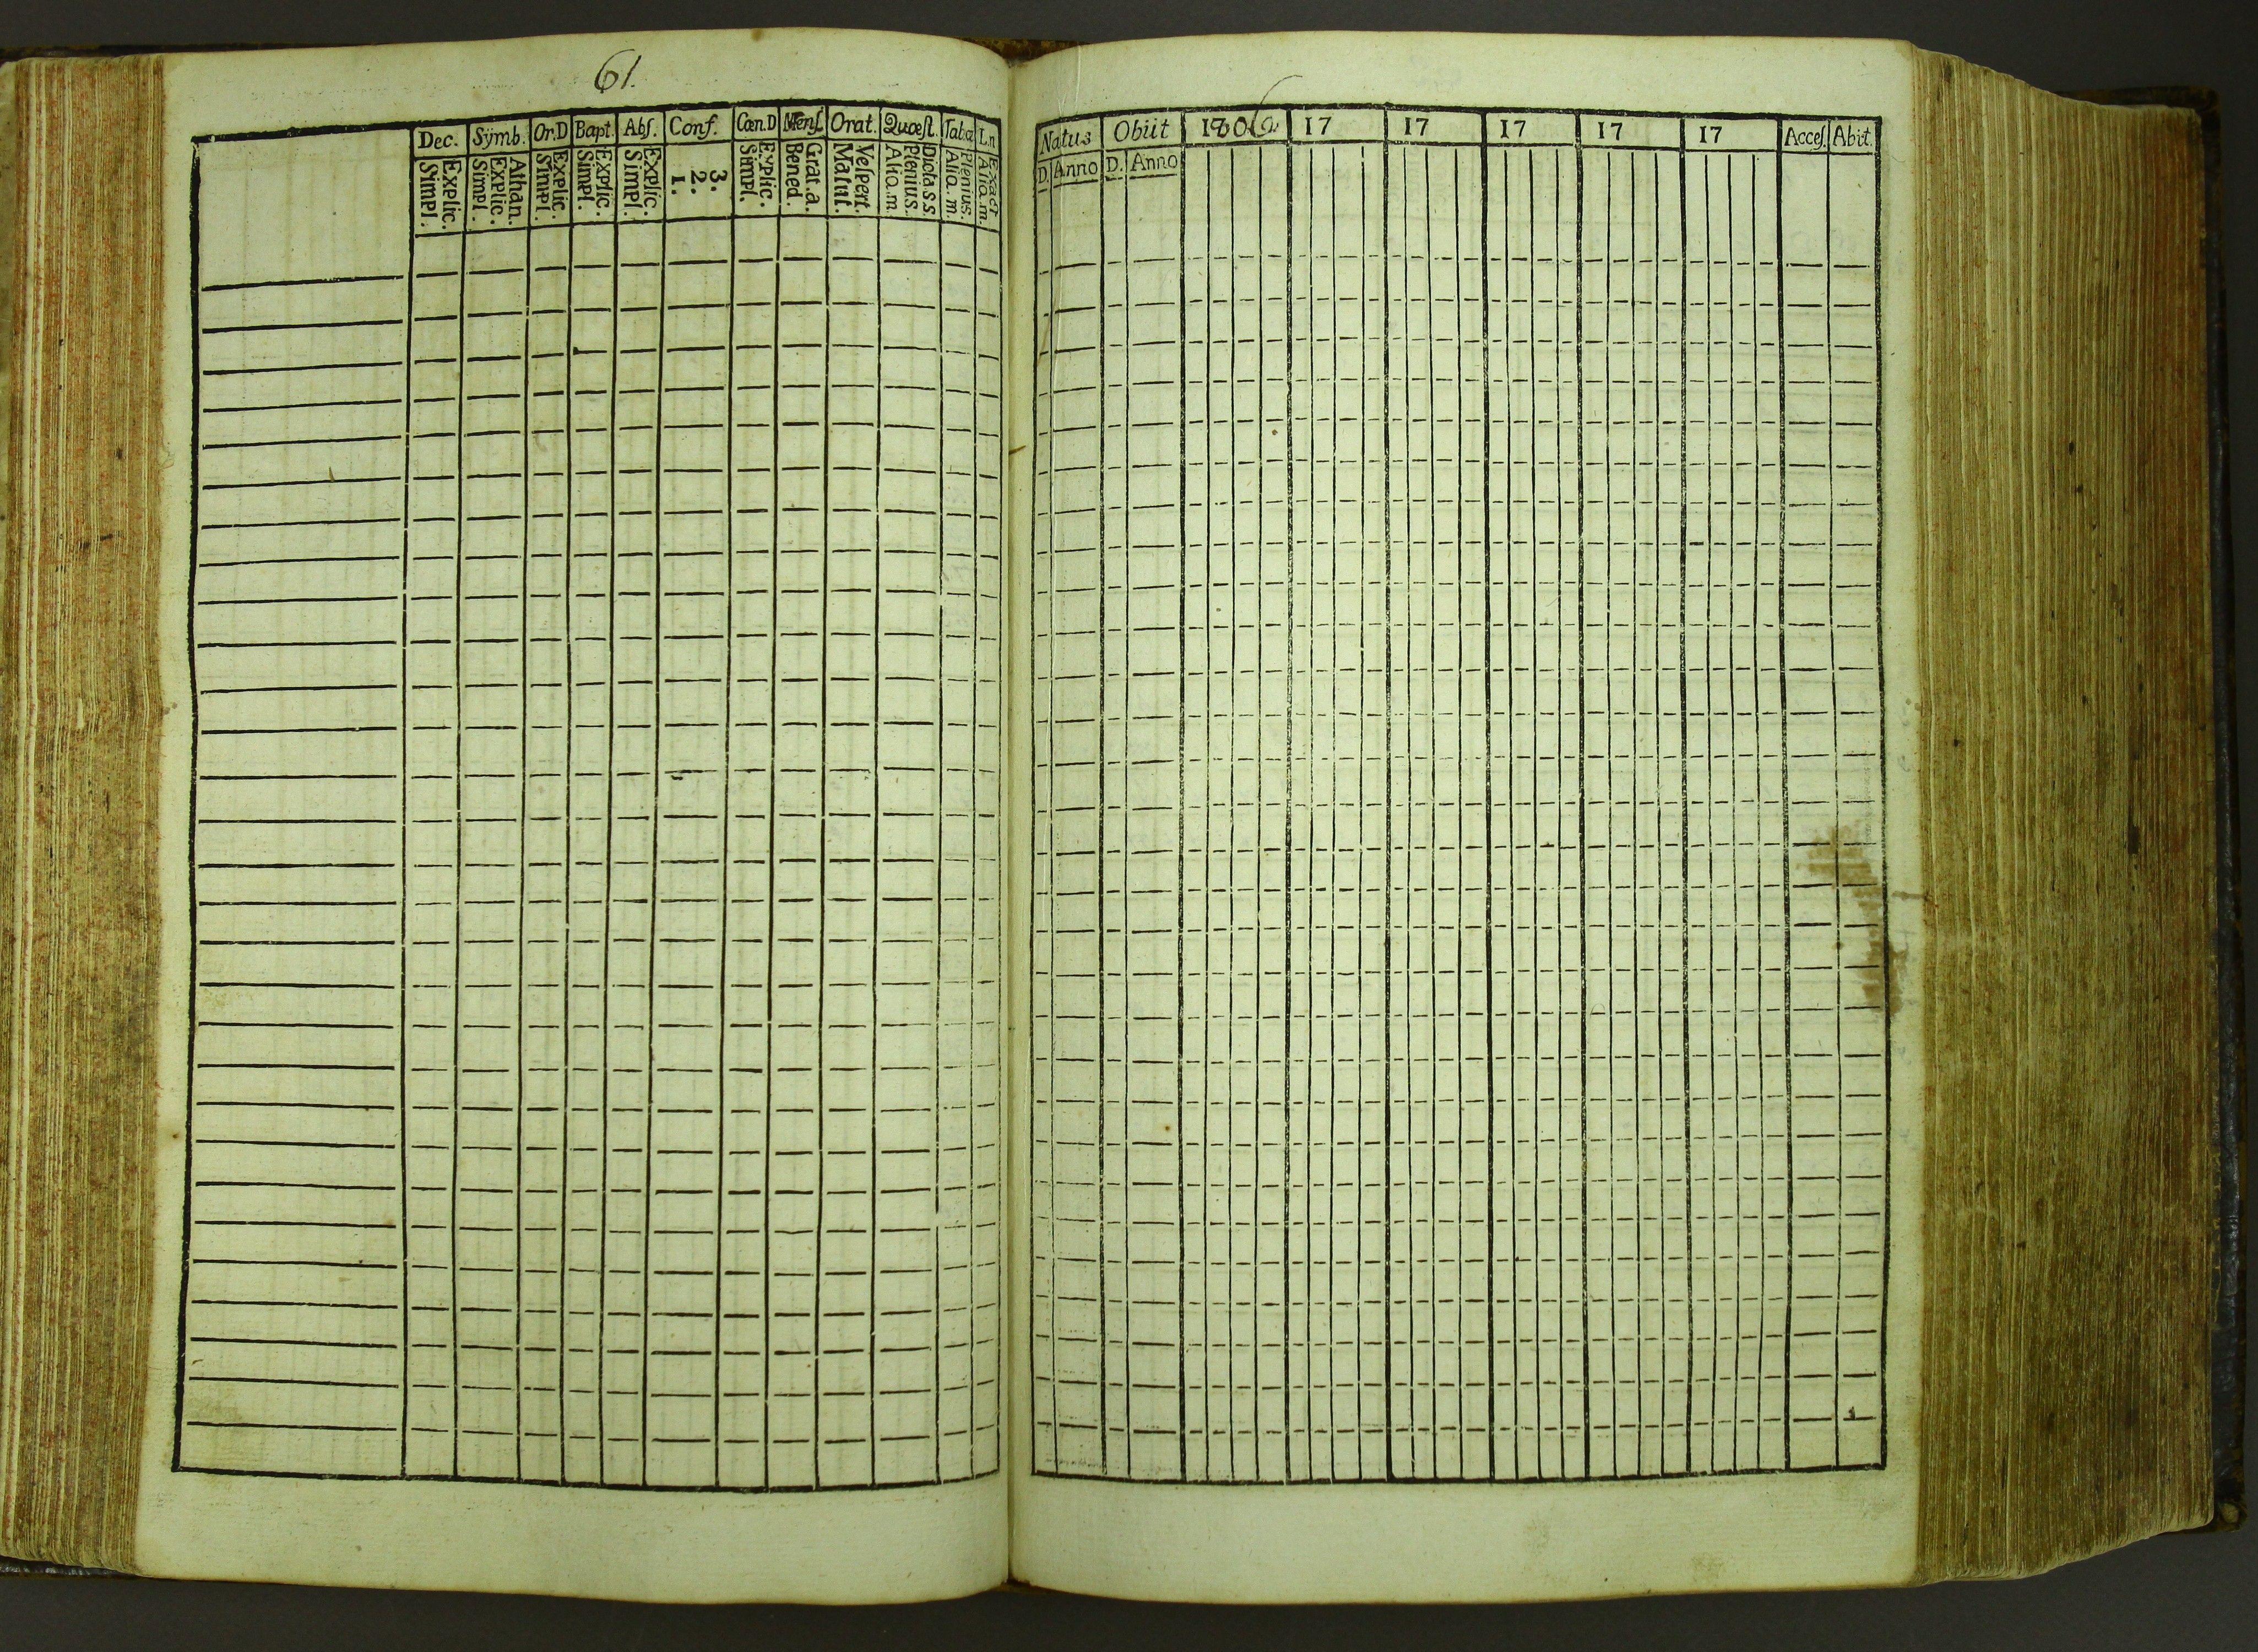 61.
Dec. Sÿmb. Or.D Bapt. Abſ. Conf. Cœn.D Menſ. Orat. Quœſt. Tabœ L.n
Explic. Simpl.
Athan. Explic. Simpl.
Explic. Simpl.
Explic. Simpl.
Explic. Simpl.
3. 2. 1.
Explic. Simpl.
Grat.a. Bened.
Veſpert. Matut.
Dicta.s.s. Plenius. Alio.m.
Plenius. Alia.m.
Exact Alia.m.
Natus Obiit 180 17 17 17 17 17 Acceſ. Abit.
D. Anno D. Anno